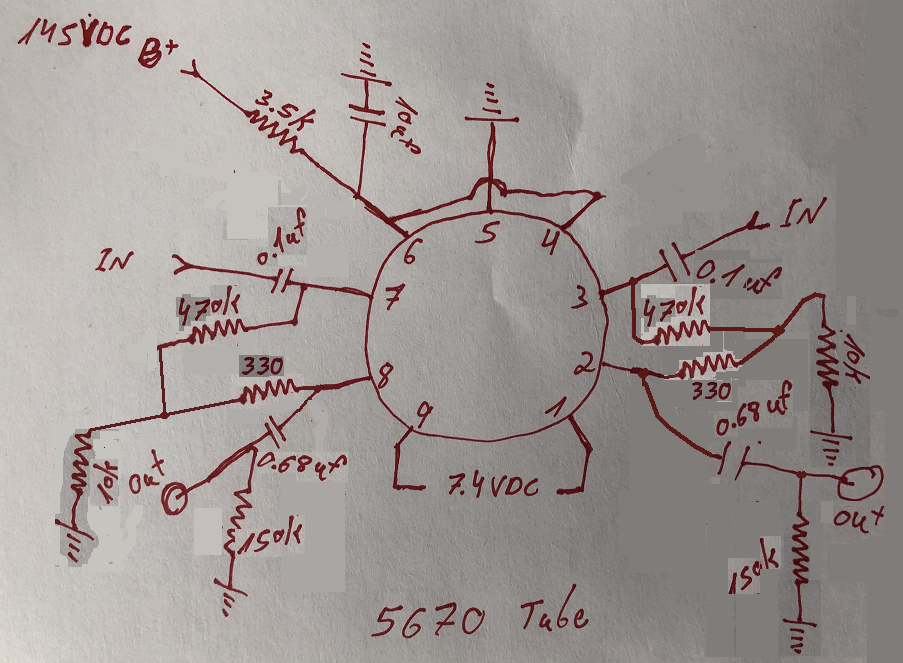 145VDC B+
3.5k
10uf
IN
0.1uf
470k
330
0.68uf
10k
Out
150k
6
5
4
7
3
8
2
9
1
7.4VDC
IN
0.1uf
470k
330
10k
0.68uf
Out
150k
5670 Tube